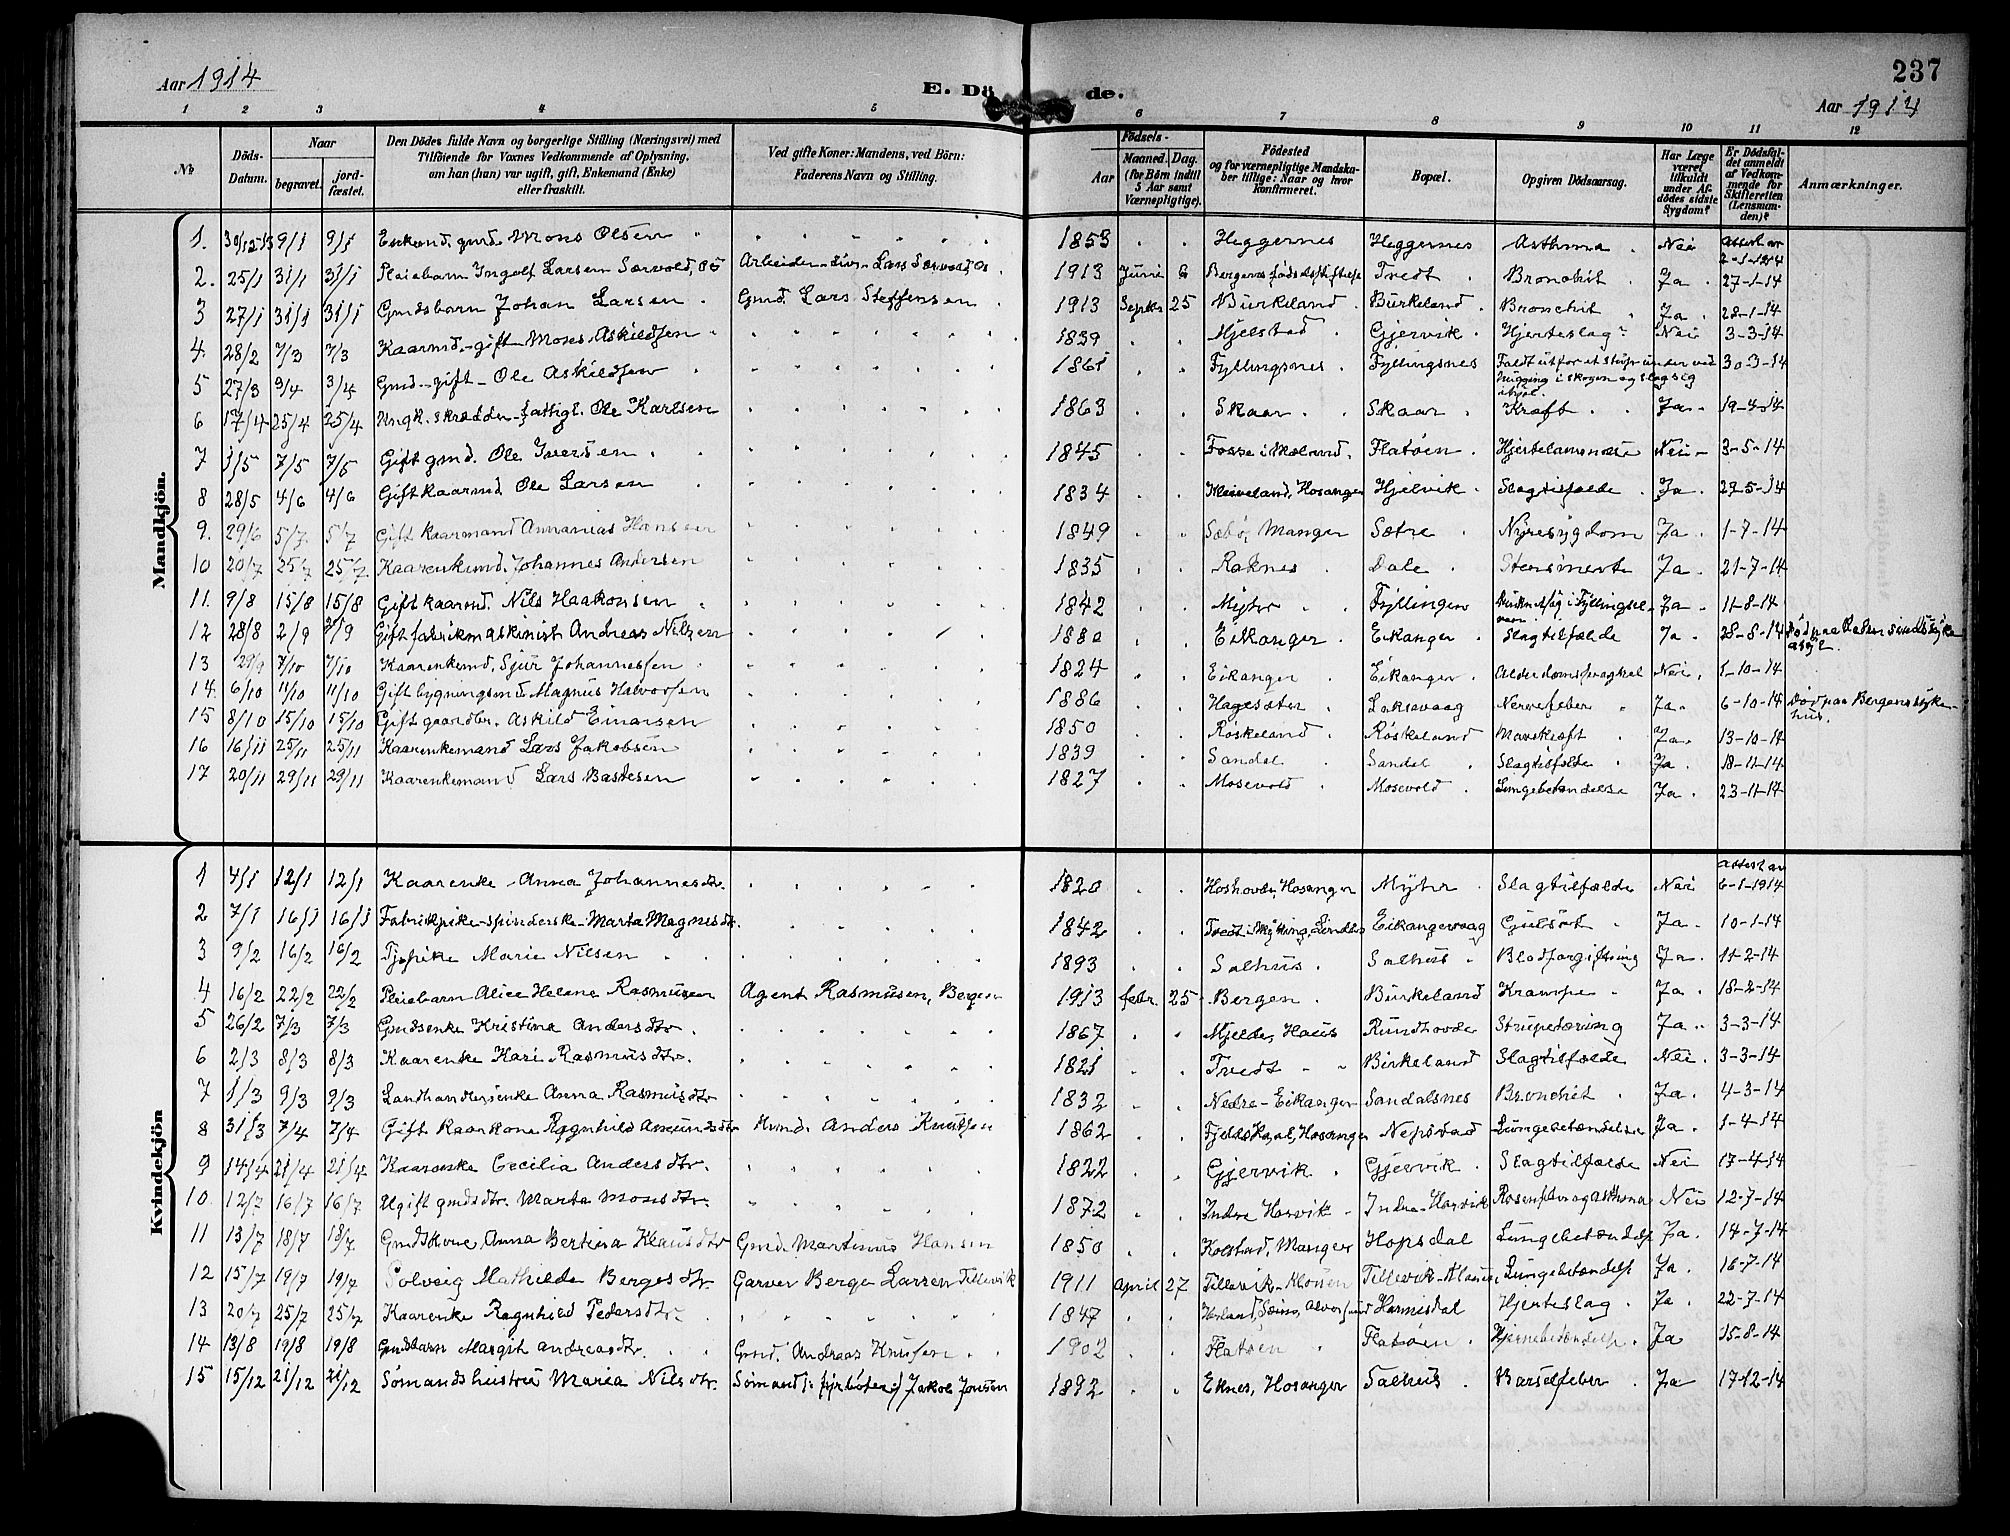 237
Aar 1914
E. Dö de.
Aar 1914
1 2 3 4 5 6 7 8 9 10 11 12
No.
Döds-Datum.
Naar
begravet.
jord-fæstet.
Den Dödes fulde Navn og borgerlige Stilling (Næringsvei) med
Tilföiende for Voxnes Vedkommende af Oplysning,
om han (hun) var ugift, gift, Enkemand (Enke)
eller fraskilt.
Ved gifte Koner: Mandens, ved Börn:
Faderens Navn og Stilling.
Födsels-
Aar
Maaned. Dag.
(for Börn indtil
5 Aar samt
Værnepligtige).
Födested
og for værnepligtige Mandska-
ber tillige: Naar og hvor
konfirmeret.
Bopæl.
Opgiven Dödsaarsag.
Har Læge
været
tilkaldt
under Af-
dödes sidste
Sygdom?
Er Dödsfal-
det anmeldt
af Vedkom-
mende for
Skifteretten
(Lensman-
den)?
Anmærkninger.
Mandkjön.
1. 30/12-13 9/1 9/1 Enkemd. gmd. Mons Olsen 1853 Heggernes Heggernes Asthma Nei 2-1-1914
2. 25/1 31/1 31/1 Pleiebarn Ingolf Larsen 1913 Juni 6 Bergens fødselsstiftelse Tvedt Bronchit Ja 27-1-14
3 27/1 31/1 31/1 Gmdsbarn Johan Larsen Gmd. Lars Steffensen 1913 Septbr 25 Burkeland Burkeland Bronchit Ja 28-1-14
4. 28/2 7/3 7/3 Kaarmd.-gift Mons Askildsen 1839 Hjelstad Gjervik Hjerteslag Nei 3-3-14
5 27/3 9/4 3/4 Gmd-gift- Ole Askildsen 1861 Fyllingsnes Fyllingsnes Faldt utfor et stup under ved
hugging i skogen og slog sig
ihjel. 30-3-14
6 17/4 25/4 25/4 Ungk. skrædder-fattigl. Ole Karlsen 1863 Skaar Skaar Kræft Ja 19-4-14
7 1/5 7/5 7/5 Gift gmd. Ole Iversen 1845 Fosse i Mæland Flatøen Hjertelammelse Nei 3-5-14
8 28/5 4/6 4/6 Gift kaarmd Ole Larsen 1834 Kleiveland, Hosanger Hjelvik Slagtilfælde Ja 29-5-14
9. 29/6 5/7 5/7 Gift kaarmand Annanias Hansen 1849 Sæbø, Manger Sætre Nyresygdom Ja 1-7-14
10 20/7 25/7 25/7 Kaarenkemd. Johannes Andersen 1835 Raknes Dale Stensmerte Ja 21-7-14
11. 9/8 15/8 15/8 Gift kaarmd. Nils Haakonsen 1842 Myhr Fyllingen Ja 11-8-14
12 28/8 2/9 2/9 Gift fabrikmaskinist Andreas Nilsen 1880 Eikanger Eikanger Slagtilfælde Ja 28-8-14
13 29/9 7/10 7/10 Kaarenkemd. Sjur Johannessen 1824 Eikanger Eikanger Alderdomssvaghet Nei 1-10-14
14. 6/10 11/10 11/10 Gift bygningsmd. Magnus Halvorsen 1886 Hagesæter Laksevaag Nervefeber Ja 6-10-14 Død paa Bergens syke-
hus.
15 8/10 15/10 15/10 Gift gaardbr. Askild Einarsen 1850 Røskeland Røskeland Mavekræft Ja 13-10-14
16 16/11 25/11 25/11 Kaarenkemand Lars Jakobsen 1839 Sandal Sandal Slagtilfælde Ja 18-11-14
17 20/11 29/11 29/11 Kaarenkemand Lars Bastesen 1827 Mosevold Mosevold Lungebetændelse Ja 23-11-14
Kvindekjön
1 4/1 12/1 12/1 Kaarenke Anna Johannesdtr. 1820 Hoshovde, Hosanger Myhr Slagtilfælde Nei 6-1-1914
2 7/1 16/1 16/1 Fabrikpike-spinderske-Marta Magnesdtr. 1842 Tvedt i Mykking, Lindås Eikangervaag Gulsot Ja 10-1-14
3 9/2 16/2 16/2 Tjpike Marie Nilsen 1893 Salhus Salhus Blodforgiftning Ja 11-2-14
4 16/2 22/2 22/2 Pleiebarn Alice Helene Rasmussen Agent Rasmusen, Bergen 1913 febr. 25 Bergen Burkeland Krampe Ja 18-2-14
5 26/2 7/3 7/3 Gmdsenke Kristina Andersdtr. 1867 Mjelde, Haus Rundhovde Strupetæring Ja 3-3-14
6 2/3 8/3 8/3 Kaarenke Kari Rasmusdtr. 1821 Tvedt Birkeland Slagtilfælde Nei 3-3-14
7 1/3 9/3 9/3 Landhandlerenke Anna Rasmusdtr 1832 Nedre-Eikanger Sandalsnes Bronchit Ja 4-3-14
8 31/3 7/4 7/4 Gift Kaarkone Ragnhild Amundsdtr Kmd. Anders Knutsen 1862 Fjeldskaal, Hosanger Nepstad Lungebetændelse Ja 1-4-14
9 14/4 21/4 21/4 Kaarenke Cecilia Andersdtr. 1822 Gjervik Gjervik Slagtilfælde Nei 17-4-14
10. 12/7 16/7 16/7 Ugift gmdsdtr. Marta Monsdtr. 1872 Indre Hosvik Indre-Hosvik Rosenfeber og asthma Nei 12-7-14
11 13/7 18/7 18/7 Gmdskone Anna Bertina Klausdtr Gmd. Martinus Hansen 1850 Kolstad, Manger Hopsdal Lungebetændelse Ja 14-7-14
12 15/7 19/7 19/7 Solveig Mathilde Bergesdtr. Garver Berge Larsen Tellevik 1911 April 27 Tellevik-Mouen Tellevik-Mouen Lungebetændelse Ja 16-7-14
13 20/7 25/7 25/7 Kaarenke Ragnhild Pedersdtr. 1847 Hopland, Seim, Alversund Hammisdal Hjerteslag Ja 22-7-14
14 13/8 19/8 19/8 Gmdsbarn Margit Andreasdtr. Gmd. Andreas Knutsen 1902 Flatøen Flatøen Hjernebetændelse Ja 15-8-14
15 15/12 21/12 21/12 Sømandshustru Maria Nilsdtr. Sømand (: fyrbøter :) Jakob Jonsen 1892 Eknes, Hosanger Salhus Barselfeber Ja 17-12-14